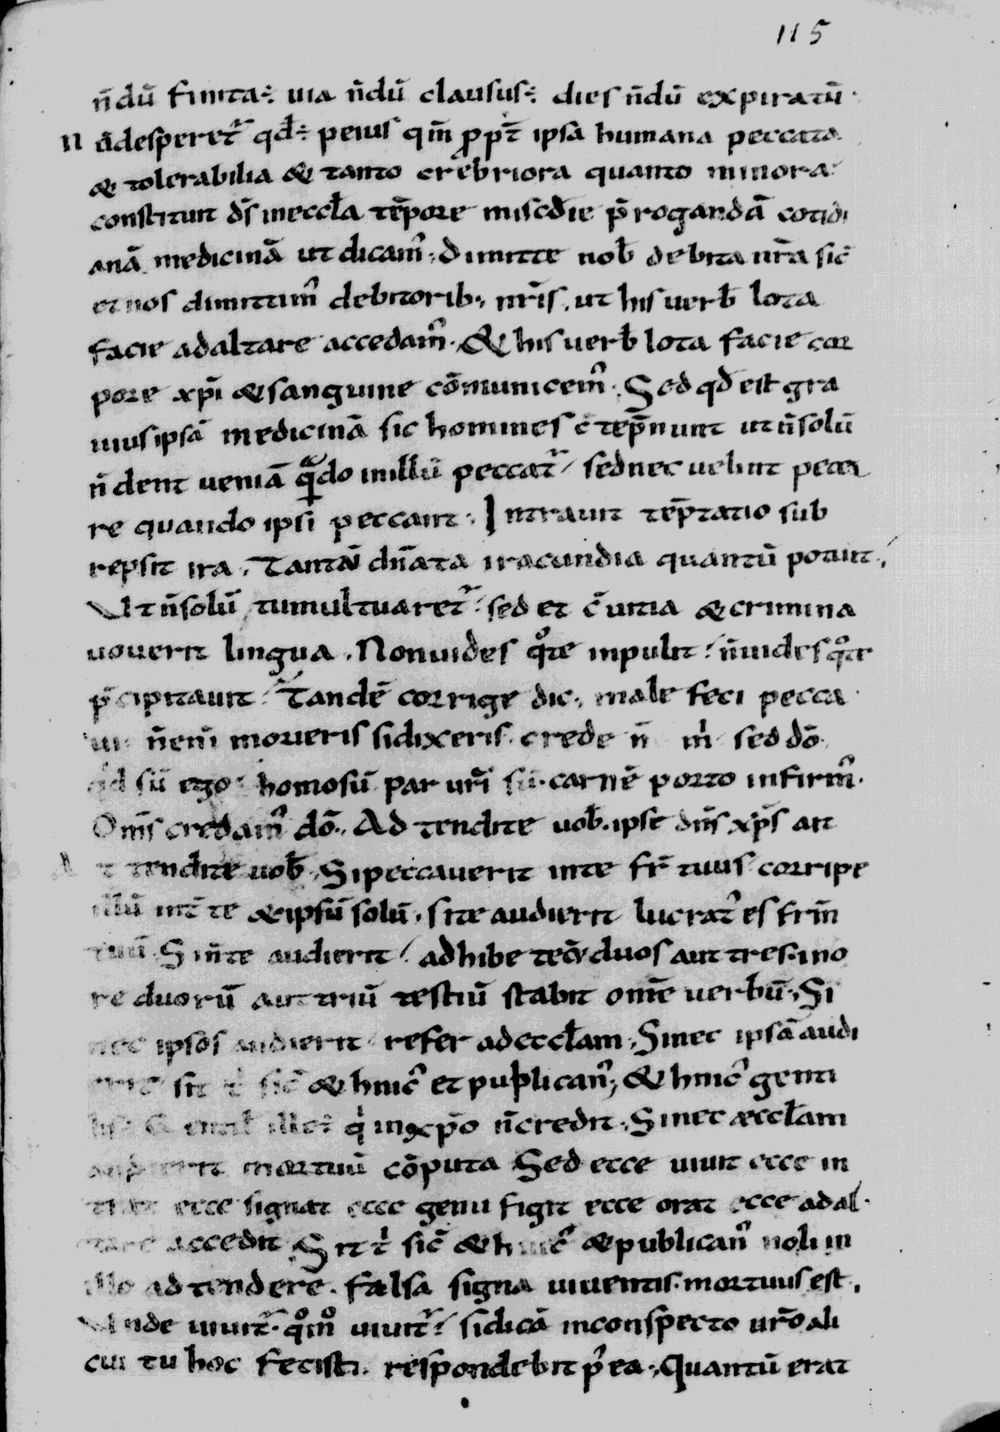 115
n̄dū finita: uia n̄dū clausus: dies n̄dū expiratū
N ādesperet᷑ qd̄: peius qm̄ ꝓpt̄ ipsā humana peccata
& tolerabilia & tanto crebriora quanto minora
constituit d̄s ineccl̄a tēpore miscdie p̄rogandā cotidi
anā medicinā ut dicam᷑. Dimitte nob̄ debita nr̄a sic̄
et nos dimittim᷑ debitorib; nr̄is. ut his uerb̄ lota
facie adaltare accedam᷑. & his uerb̄ lota facie cor
pore xp̄i & sanguine cōmunicem᷑. Sed qd̄ est gra
uius ipsā medicinā sic homines c̄tēp̄nunt ut n̄solū
n̄ dent ueniā qᷓ̄do inillū peccat᷑ sed nec uelint pecca
re quando ipsi peccant. Intrauit tēp̄tatio sub
repsit ira. Tantā dn̄ata iracundia quantū potuit.
Ut n̄solū tumultuaret᷑ sed et c̄uitia & crimina
uouerit lingua. Nonuides qͦ te inpulit n̄uides qͦ te
p̄cipitauit Tandē corrige dic. male feci pecca
ui n̄enī moueris sidixeris. crede n̄ m̄ sed dō
qd sū ego homo sū par ur̄i sū. carnē porto infirm᷑.
Om̄s credam᷑ dō. Ad tendite uob̄. ipse dn̄s xp̄s ait
A t tendite uob̄. Si peccauerit inte fr̄ tuus corripe
illū int̄ te & ipsū solū. si te audierit lucrat᷑ es frm̄
tuū. Si n̄te audierit adhibe tecū duos aut tres. ino
re duorū aut triū testiū stabit ōme uerbū. Si
nec ipsos audierit refer adeccl̄am. Sinec ipsā audi
erit sit t̄ sic̄ & hnic᷑ et puplican᷑, & hnic᷑ genti
lis. qͥ inxp̄o n̄credit. Sinec æccl̄am
audierit mortuū cōputa Sed ecce uiuit ecce in
trat ecce signat ecce genu figit ecce orat ecce adal
tare accedit Sit t̄ sic̄ & hnic᷑ & publican᷑ noli in
illo adtendere. falsa signa uiuentis. mortuus est.
Unde uiuit᷑. qͦmͦ uiuit᷑ sidicā inconspecto ur̄o ali
cui tu hoc fecisti. respondebit p̄ea. Quantū erat